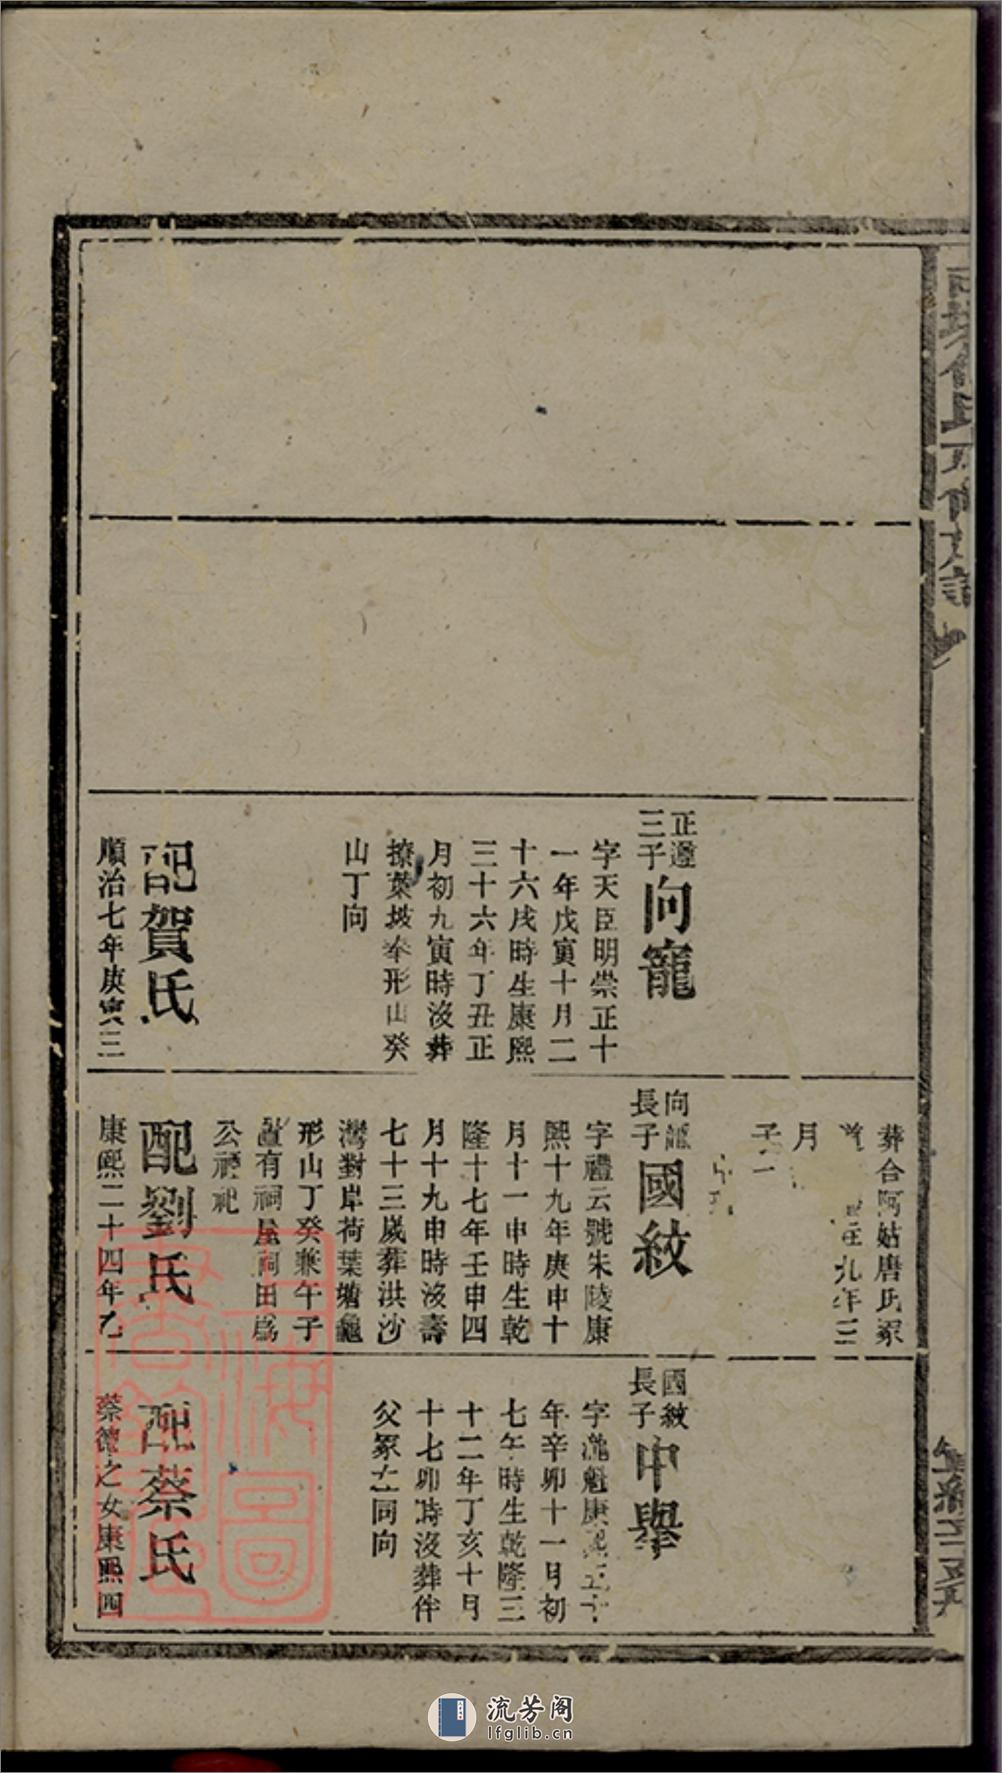 正遵
三子
向寵
字天臣明崇正十
一年戊寅十月二
十六戌時生康熙
三十六年丁丑正
月初九寅時沒葬
撩葉坡奉形山癸
山丁向
配賀氏
順治七年庚寅三
葬合阿姑唐氏冢
在九年三
月
子一
向
長子
國紋
字禮云號朱陵康
熙十九年庚申十
月十一申時生乾
隆十七年壬申四
月十九申時沒壽
七十三歲葬洪沙
灣對岸荷葉塘龜
形山丁癸兼午子
置有祠屋祠田為
公祀
配劉氏
康熙二十四年乙
國紋
長子
中舉
字魁康熙五十
年辛卯十一月初
七午時生乾隆三
十二年丁亥十月
十七卯時沒葬伴
父冢左同向
配蔡氏
蔡德之女康熙四
上海圖書館藏
流芳阁
lfglib.cn